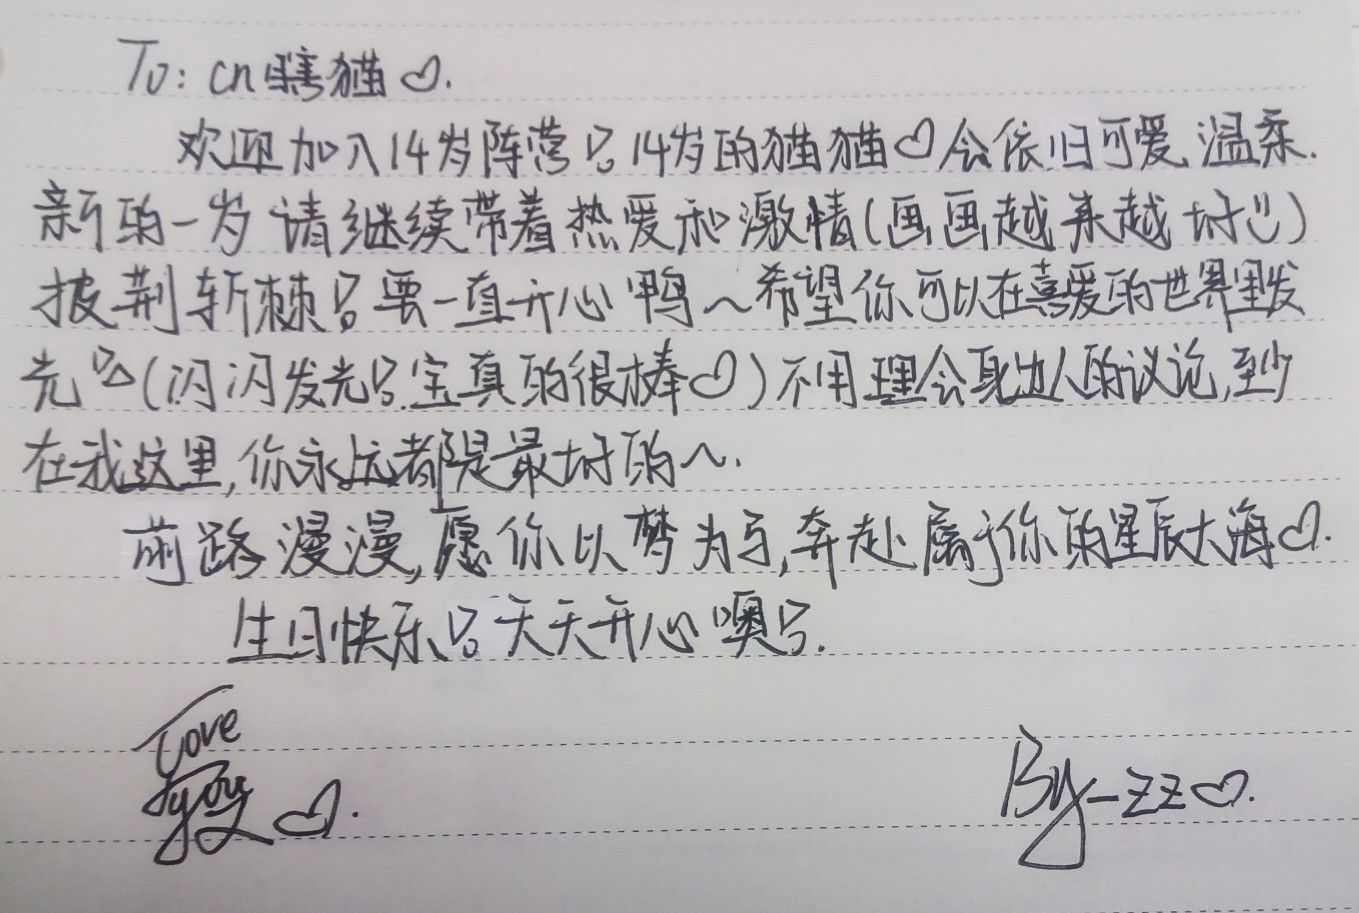 To: cn瞎猫♡.
欢迎加入14岁阵营!14岁的猫猫♡会依旧可爱、温柔.
新的一岁 请继续带着热爱和激情(画画越来越好!!)
披荆斩棘!要一直开心鸭~希望你可以在喜爱的世界里发
光!!(闪闪发光!宝真的很棒♡)不用理会身边人的议论,至少
在我这里,你永远都是最好的~.
前路漫漫,愿你以梦为马,奔赴属于你的星辰大海♡.
生日快乐!天天开心噢!.
Love
you♡.
By-zz♡.